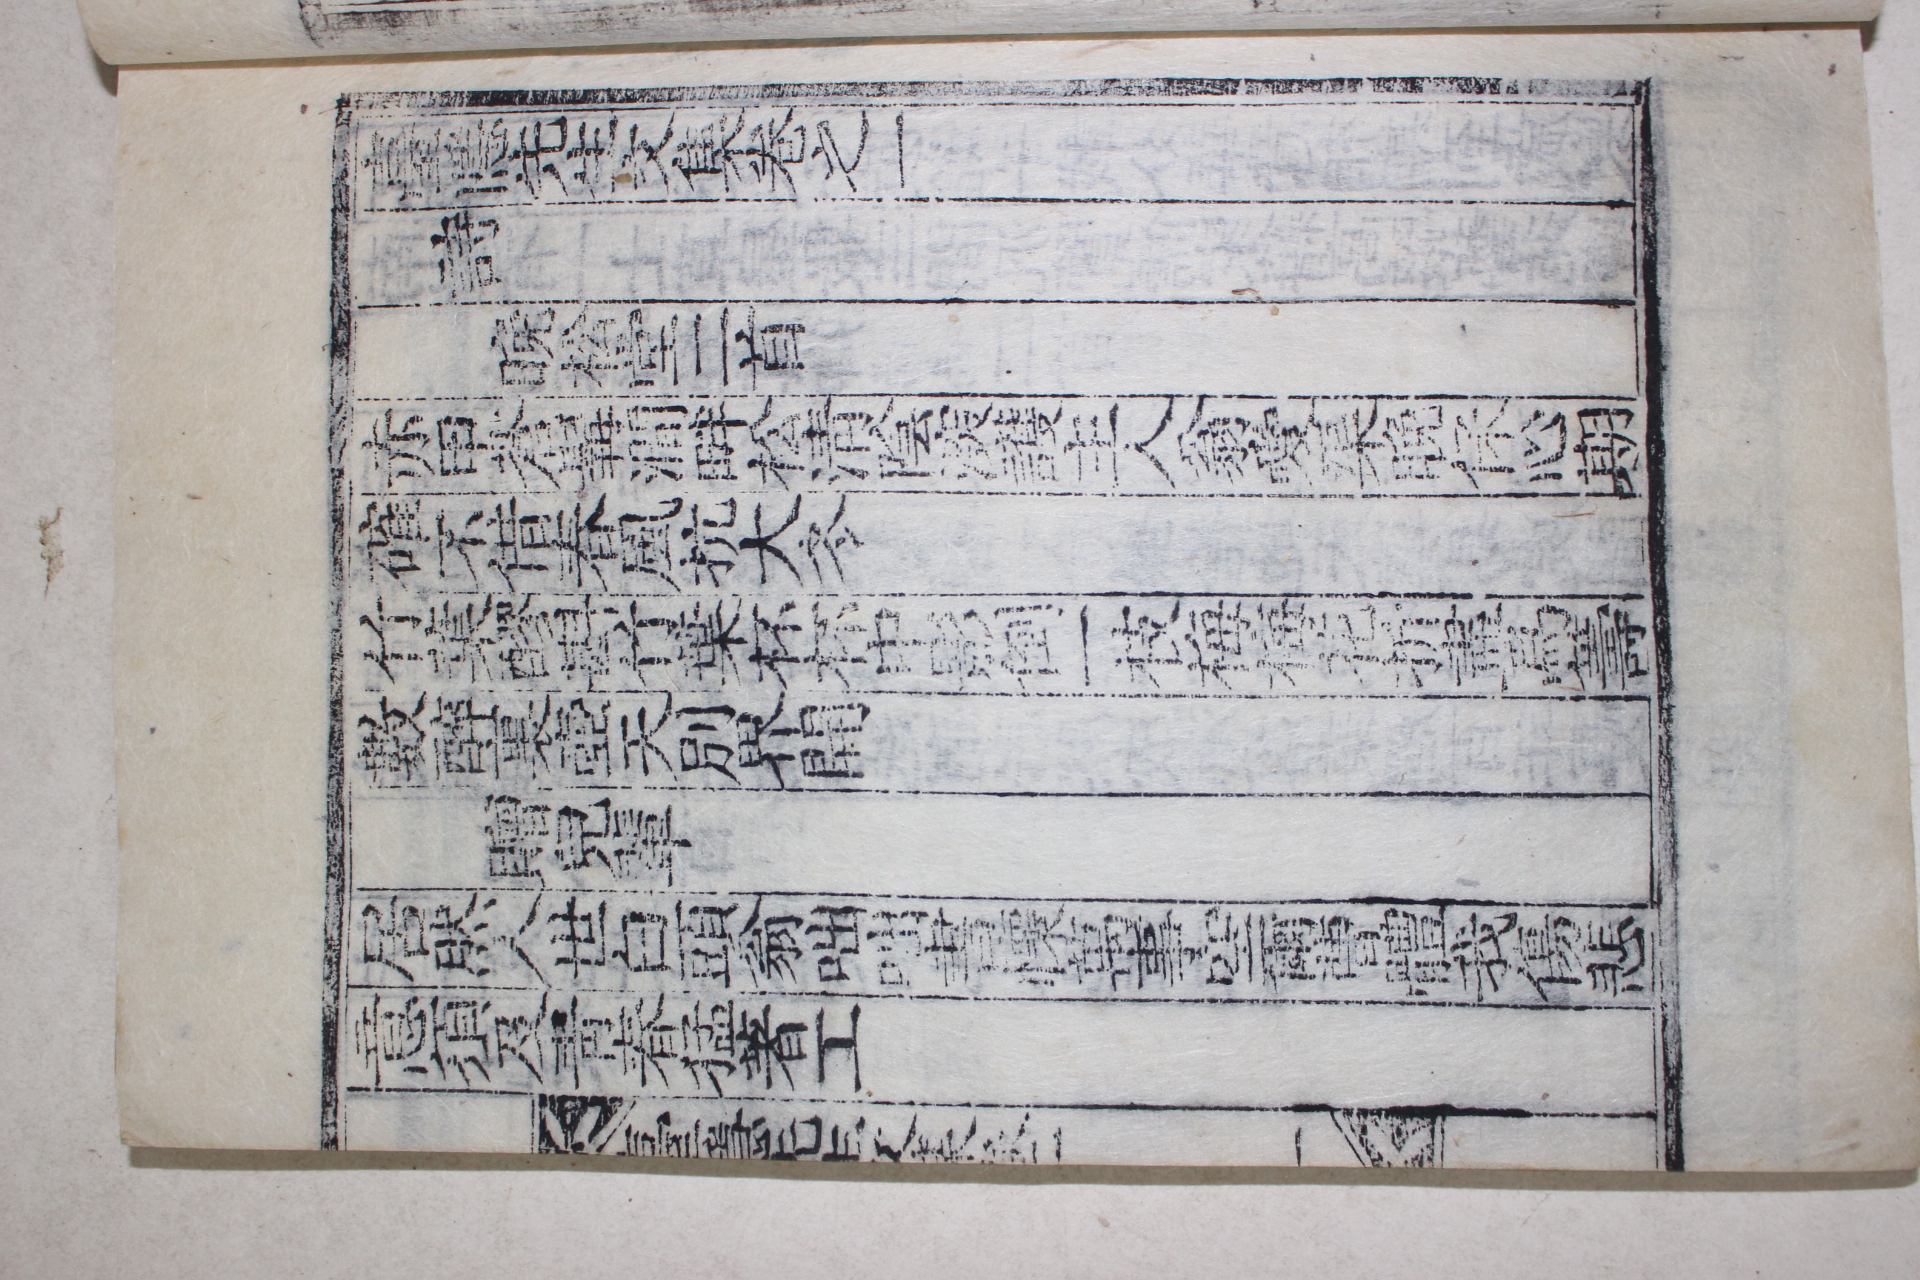 臺隱先生文集卷之一
詩
晩松堂二首
赤甲蒼髯澗畔松清陰深護主人翁愛渠晩保心期
確不借春風抗大冬
竹葉醪斟竹葉杯杯中影倒一枝梅梅花 壽 壽
數醉裏壺天別界開
贈兒輩
居然人世白頭翁咄咄書懷萬事空 我傷悲
意須及青春猛著工